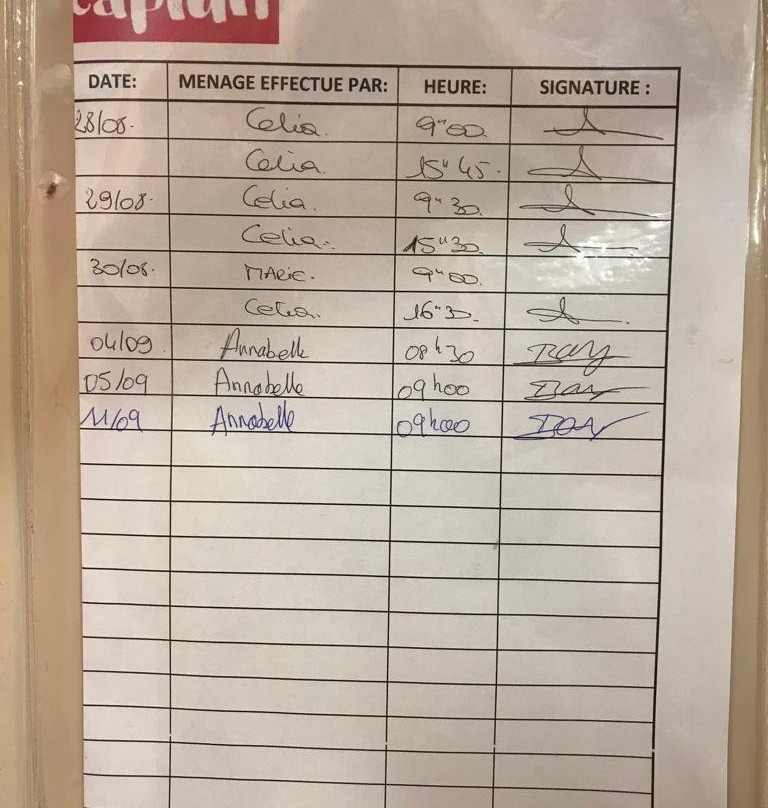 DATE: MENAGE EFFECTUE PAR: HEURE: SIGNATURE :
28/08. Celia. 9"00.
Celia. 15"45.
29/08. Celia. 9"30.
Celia. 15"30.
30/08. MARIE. 9"00.
Celia. 16"30.
04/09 Annabelle 08h30
05/09 Annabelle 09h00
11/09 Annabelle 09h00